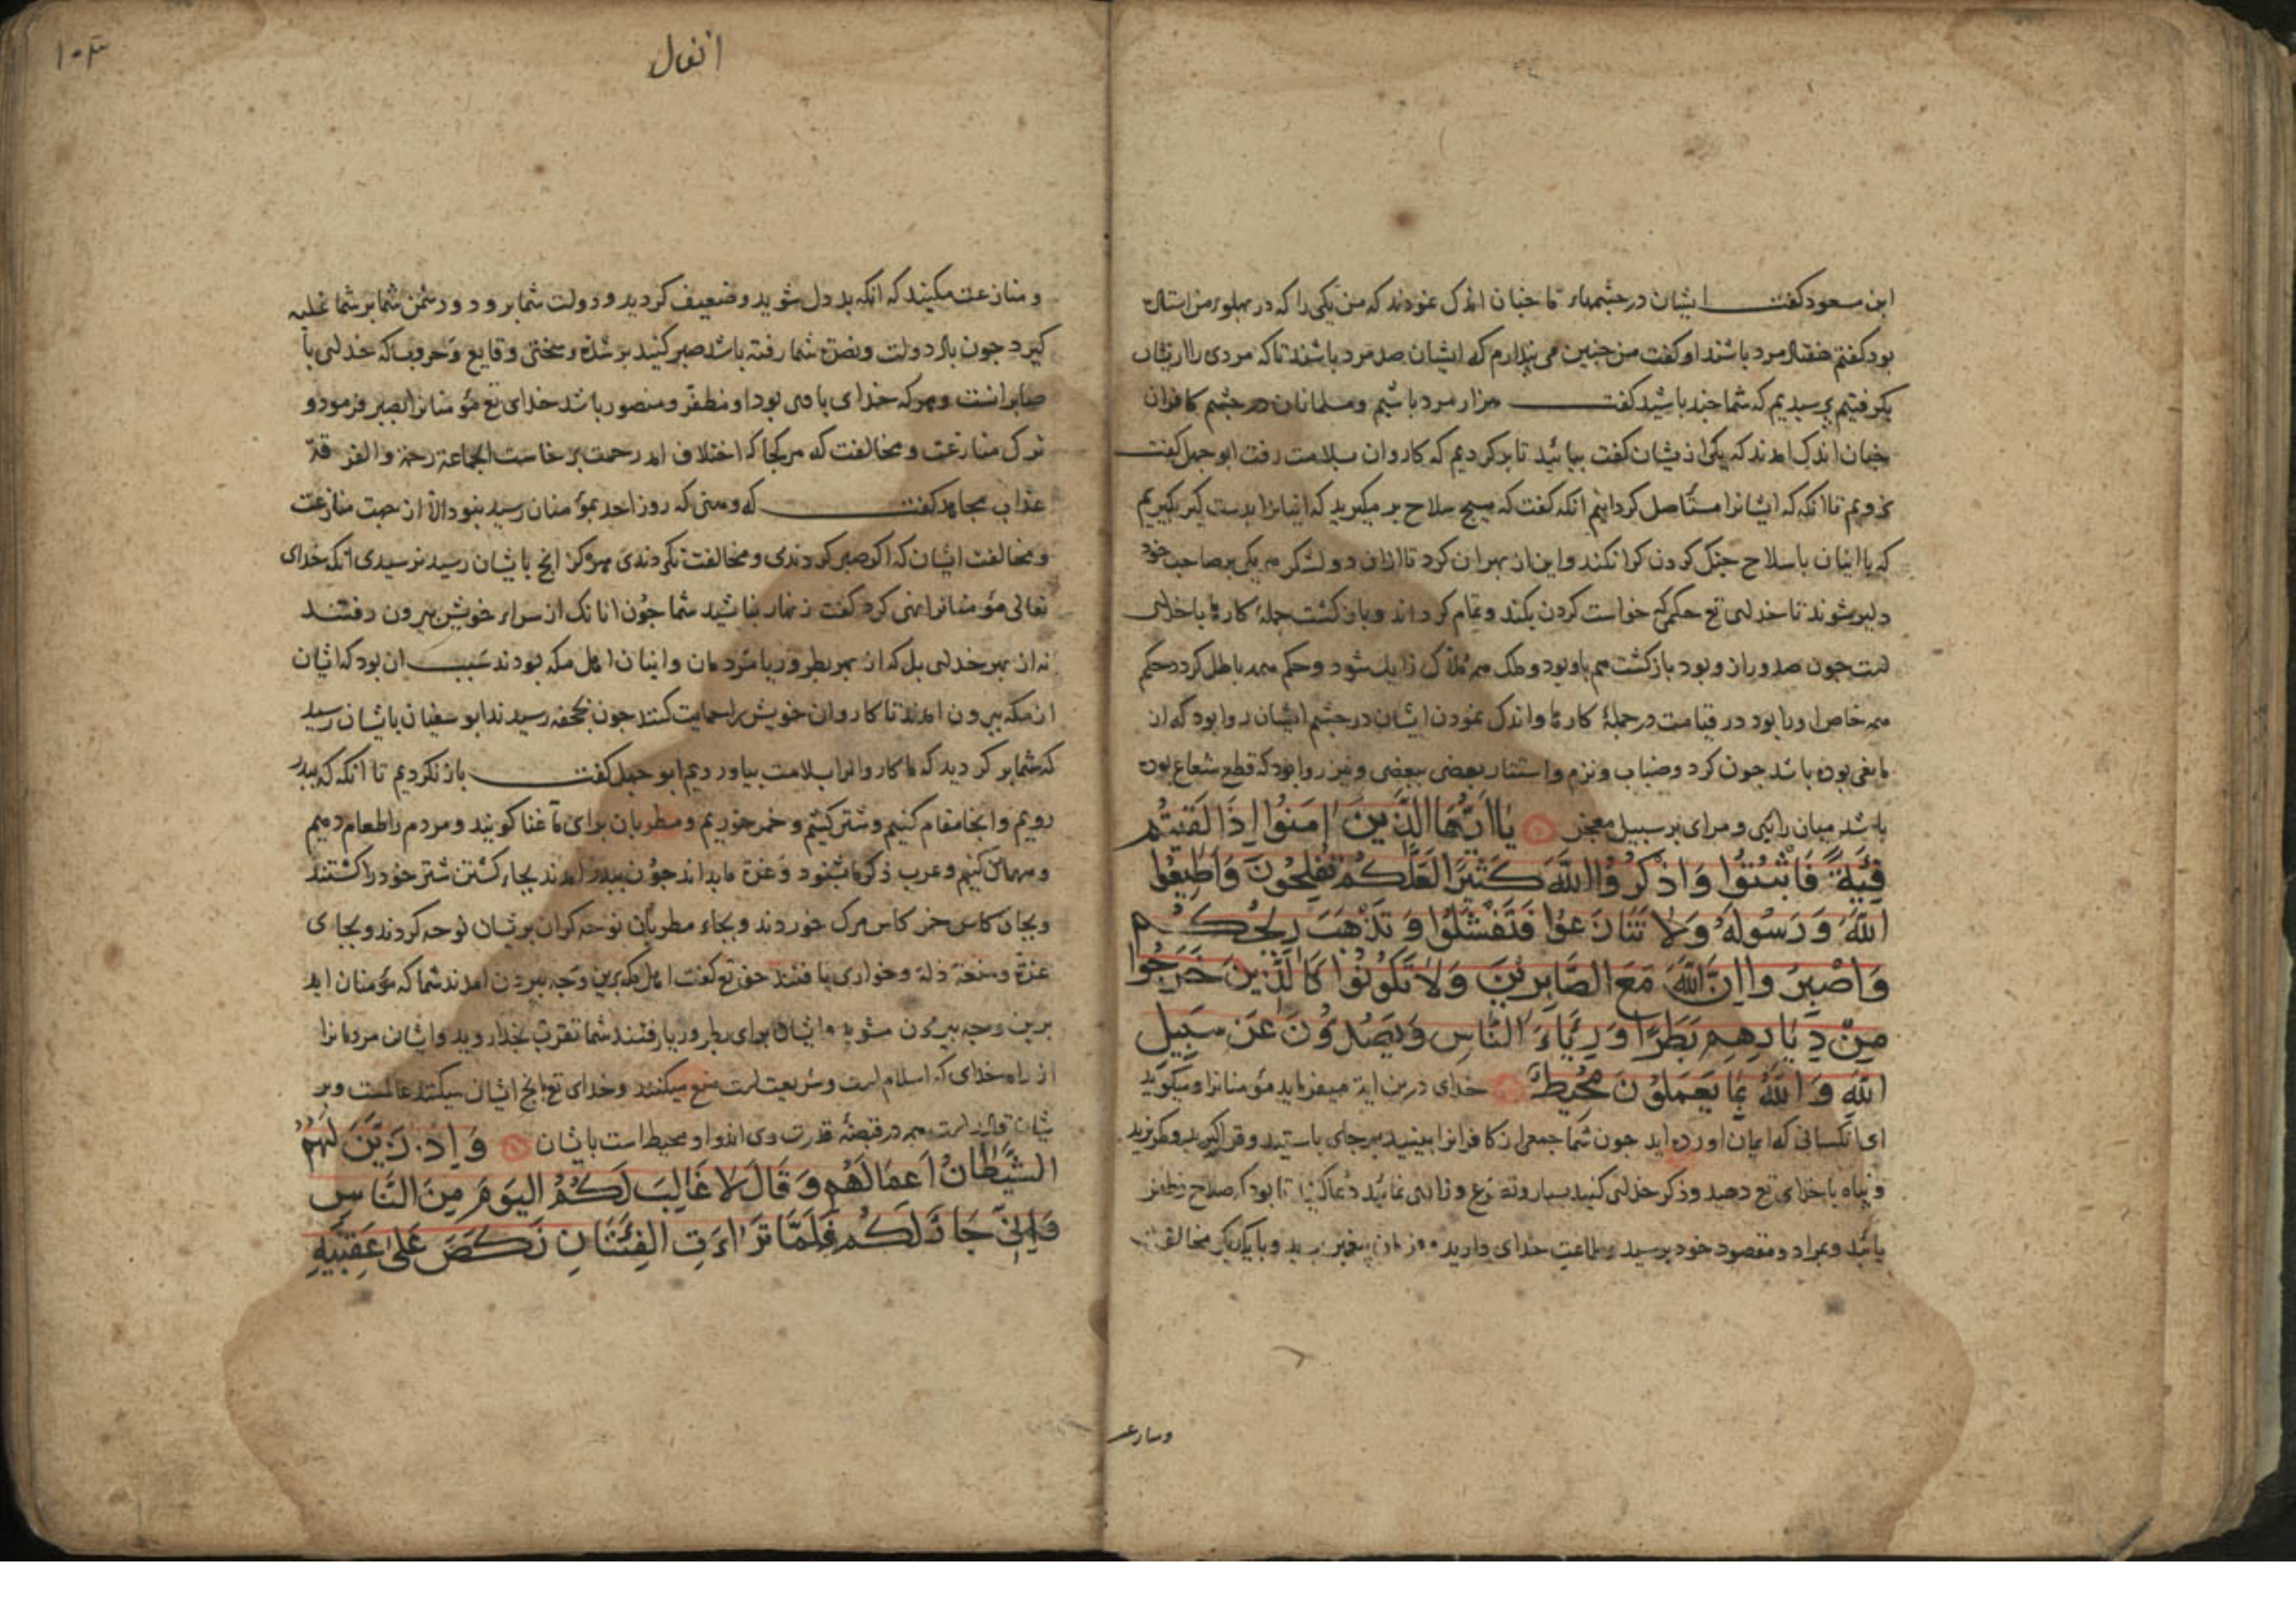 ابن مسعود گفت ایشان در چشمهاء ما چنان اندک نمودند که من یکی را که در پهلوء من استاده
بود گفتم هفتاد مرد باشند او گفت من چنین می پندارم که ایشان صد مرد باشند تا که مردی را از یشان
بگرفتیم پرسیدیم که شما چند باشید گفت هزار مرد باشیم و مسلمانان در چشم کافران
چنان اندک امدند که یکی از یشان گفت بیائید تا بر کردیم که کاروان بسلامت رفت ابو جهل گفت
نرویم تا انکه که ایشانرا مستاصل کردانیم انکه گفت که هیچ سلاح بر مگیرید که اینانرا بدست گیر بگیریم
که با اینان باسلاح جنگ کردن کرا نکند و این از بهر ان کرد تا از ان دو لشکر هر یکی بر صاحب خود
دلیر شوند تا خدای تع حکمی که خواست کردن بکند و تمام کرداند و باز کشت جملهٔ کارها با خدای
است چون صدور از و بود باز کشت هم باو بود و ملک همه ملاک زایل شود و حکم همه باطل کردد حکم
همه خاص او را بود در قیامت در جملهٔ کارها و اندک نمودن ایشان در چشم ایشان روا بود که از
مانعی بوده باشد چون کرد و ضباب و نزم و استتار بعضی ببعضی و نیز روا بود که قطع شعاع بوده
باشد میان رائی و مرای بر سبیل معجز یَا اَیُّهَا الَّذِینَ اٰمَنُوا اِذَا لَقِیتُم
فِئَةً فَاثْبُتُوا وَاذْکُرُوا اللّٰهَ کَثِیرًا لَعَلَّکُم تُفلِحُونَ وَاَطِیعُوا
اللّٰهَ وَرَسُولَهُ وَلَا تَنَازَعُوا فَتَفْشَلُوا وَتَذْهَبَ رِیحُکُم
وَاصْبِرُوا اِنَّ اللّٰهَ مَعَ الصَّابِرِینَ وَلَا تَکُونُوا کَالَّذِینَ خَرَجُوا
مِنْ دِیَارِهِم بَطَرًا وَرِئَاءَ النَّاسِ وَیَصُدُّونَ عَن سَبِیلِ
اللّٰهِ وَاللّٰهُ بِمَا یَعمَلُونَ مُحِیطٌ خدای درین ایة میفرماید مؤمنانرا و میگوید
ای انکسانی که ایمان اورده اید چون شما جمعی از کافرانرا بینید بر جای بایستید و قرار گیرید و مگریزید
و پناه با خدای تع دهید و ذکر خدای کنید بسیار و تضرع و زاری نمائید دعا کنید تا بود که صلاح و ظفر
یابید و بمراد و مقصود خود برسید و طاعت خدای دارید و فرمان پیغمبر برید و با یکدیگر مخالفت
وسارعر
۱۰۳
انفال
و منازعت مکنید که انکه بد دل شوید و ضعیف کردید و دولت شما برود و دشمن شما بر شما غلبه
گیرد چون باد دولت و نصرة شما رفته باشد صبر کنید بر شدة و سختی وقایع و حروب که خدای با
صابرانست و هر که خدای با وی بود او مظفر و منصور باشد خدای تع مؤمنانرا بصبر فرمود و
ترک منازعت و مخالفت که هر کجا که اختلاف امد رحمت بر خاست الجماعة رحمة والفرقة
عذاب مجاهد گفت که وهنی که روز احد بمؤمنان رسید نبود الّا از جهت منازعت
و مخالفت ایشان که اکر صبر کردندی و مخالفت نکردندی هرکز انچ بایشان رسید نرسیدی انکه خدای
تعالی مؤمنانرا نهی کرد گفت زنهار نباشید شما چون انانک از سراء خویش بیرون رفتند
نه از بهر خدای بل که از بهر بطر و ریا مردمان و اینان اهل مکه بودند سبب ان بود که ایشان
از مکه بیرون امدند تا کاروان خویش را حمایت کنند چون بجحفه رسیدند ابو سفیان بایشان رسید
که شما بر کردید که ما کاروانرا بسلامت بیاوردیم ابو جهل گفت باز نکردیم تا انکه که ببدر
رویم و انجا مقام کنیم و شتر کشیم و خمر خوریم و مطربان برای ما غنا گویند و مردم را طعام دهیم
و مهمان کنیم و عرب ذکر ما بشنود و عزة ما بداند چون ببدر امدند بجاء کشتن شتر خود را کشتند
و بجاء کاس خمر کاس مرگ خوردند و بجاء مطربان نوحه کران بر یشان نوحه کردند و بجای
عزة و منعة ذلة و خواری یافتند حق تع گفت اهل مکه برین وجه بیرون امدند شما که مؤمنان اید
برین وجه بیرون مشوید و ایشان برای بطر و ریا رفتند شما تقرب بخدا روید و ایشان مردمانرا
از راه خدای که اسلام است و شریعت است منع میکنند و خدای تع بانچ ایشان میکنند عالمست و بر
یشان قادر است همه در قبضهٔ قدرت وی اند و او محیط است بایشان وَاِذْ زَیَّنَ لَهُمُ
الشَّیْطَانُ اَعمَالَهُم وَقَالَ لَا غَالِبَ لَکُمُ الیَومَ مِنَ النَّاسِ
وَاِنِّی جَارٌ لَکُم فَلَمَّا تَرَاءَتِ الفِئَتَانِ نَکَصَ عَلٰی عَقِبَیهِ